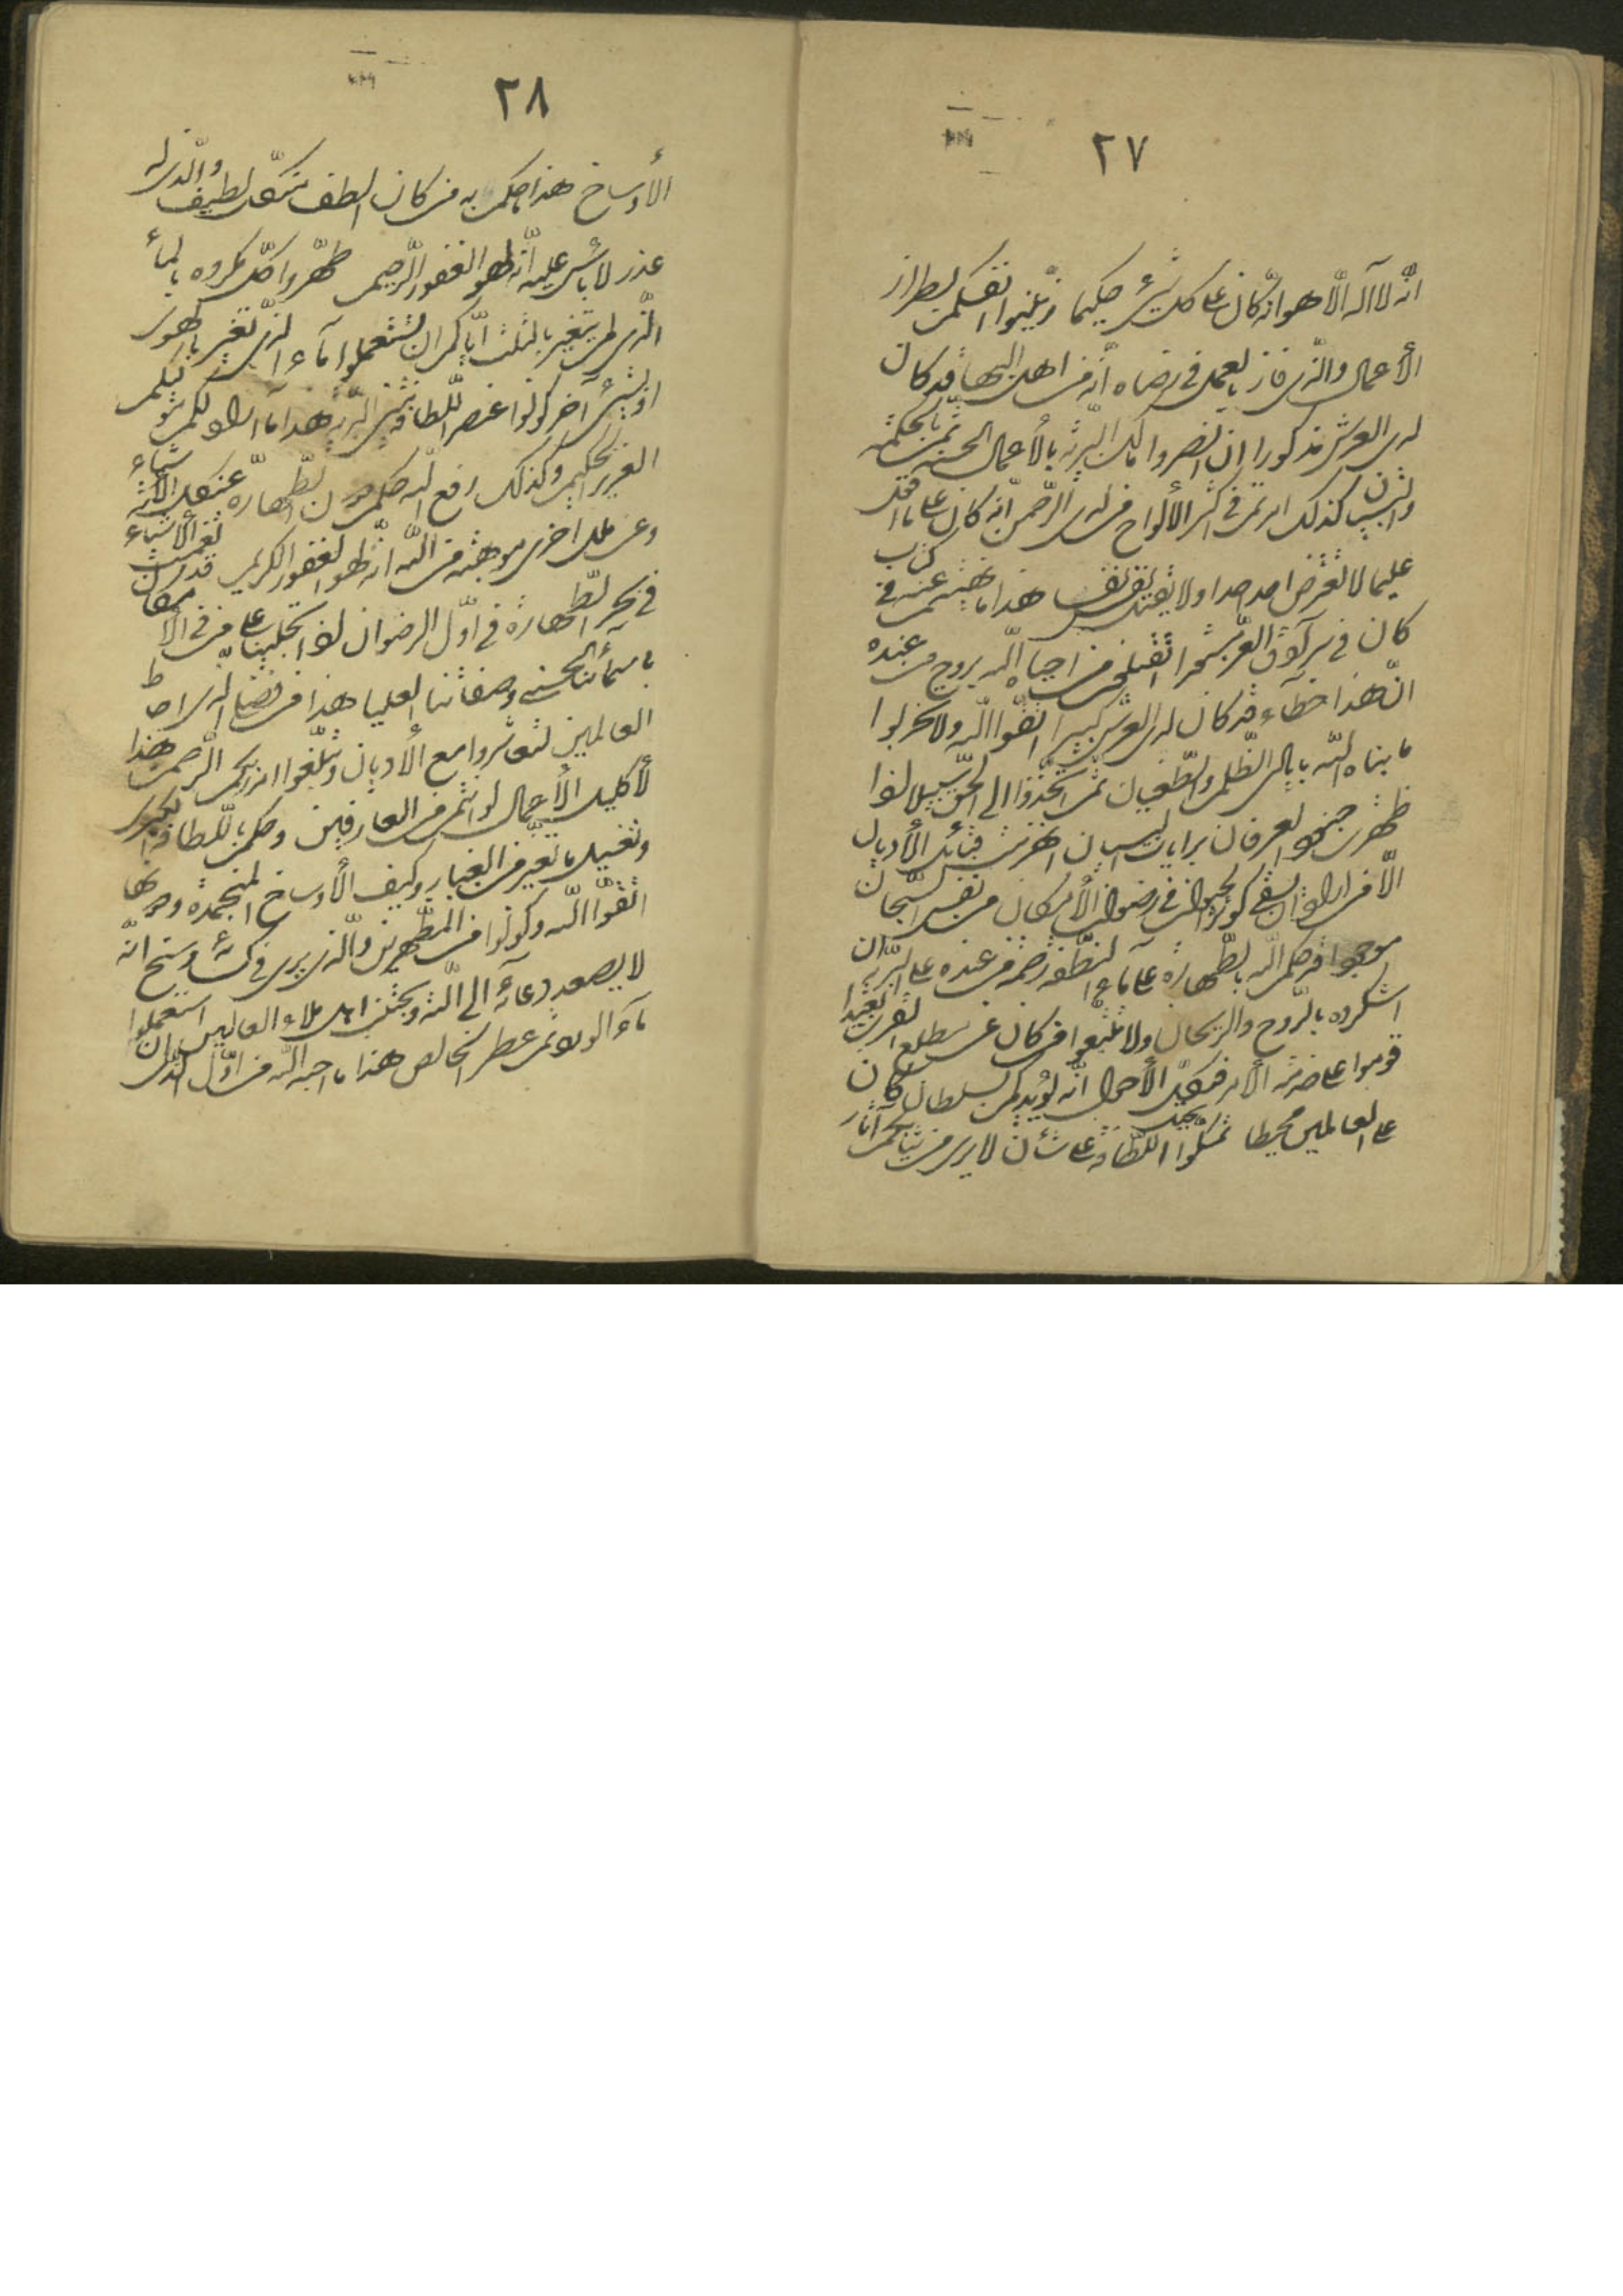 ٢٧
انّه لا اله الّا هو انّه كان على كلّ شئ حكيما زيّنوا انفسكم بطراز
الأعمال والّذى فاز بالعمل فى رضاه انّه من اهل البهآء قد كان
لدى العرش مذكورا ان انصروا مالك البريّة بالأعمال الحسنة ثمّ بالحكمة
والبيان كذلك امرتم فى اكثر الألواح من لدى الرّحمن انّه كان على ما اقول
عليما لا يعترض احد احدا ولا يقتل نفس نفسا هذا ما نهيتم عنه فى كتاب
كان فى سرادق العزّ مستورا أتقتلون من احياه الله بروح من عنده
انّ هذا خطاء قد كان لدى العرش كبيرا اتّقوا الله ولا تخربوا
ما بناه الله بايادى الظّلم والطّغيان ثمّ اتّخذوا الى الحقّ سبيلا لمّا
ظهرت جنود العرفان برايات البيان انهزمت قبائل الأديان
الّا من اراد ان يشرب كوثر الحيوان فى رضوان كان من نفس السّبحان
موجودا قد حكم الله بالطّهارة على ماء النّطفة رحمة من عنده على البريّة ان
اشكروه بالرّوح والرّيحان ولا تتّبعوا من كان عن مطلع القرب بعيدا
قوموا على خدمة الأمر فى كلّ الأحوال انّه يؤيّدكم بسلطان كان
على العالمين محيطا تمسّكوا بحبل اللّطافة على شأن لا يرى من ثيابكم آثار
٢٨
الأوساخ هذا ما حكم به من كان الطف من كلّ لطيف والّذى له
عذر لا بأس عليه انّه لهو الغفور الرّحيم طهّروا كلّ مكروه بالمآء
الّذى لم يتغيّر بالثّلث ايّاكم ان تستعملوا المآء الّذى تغيّر بالهوآء
او بشئ آخر كونوا عنصر اللّطافة بين البريّة هذا ما اراد لكم موليكم
العزيز الحكيم وكذلك رفع الله حكم دون الطّهارة عن كلّ الأشيآء
وعن ملل اخرى موهبة من الله انّه لهو الغفور الكريم قد انغمست الأشيآء
فى بحر الطّهارة فى اوّل الرضوان اذ تجلّينا على من فى الأمكان
باسمآئنا الحسنى وصفاتنا العليا هذا من فضلى الّذى احاط
العالمين لتعاشروا مع الأديان وتبلّغوا امر ربّكم الرّحمن هذا
لأكليل الأعمال لو انتم من العارفين وحكم باللّطافة الكبرى
وتغسيل ما تغبّر من الغبار وكيف الأوساخ المنجمدة ودونها
اتّقوا الله وكونوا من المطهّرين والّذى يرى فى كسآئه وسخ انّه
لا يصعد دعآئه الى الله ويجتنب عنه ملاء العالين استعملوا
مآء الورد ثمّ عطر الخالص هذا ما احبّه الله من الاوّل الّذى